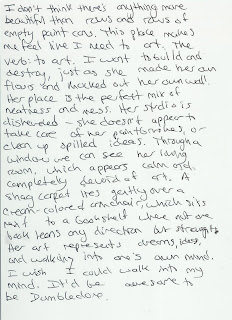 I don't think there's anything more
beautiful than rows and rows of
empty paint cans. This place makes
me feel like I need to art. The
verb: to art. I want to build and
destroy, just as she made her own
floors and knocked out her own wall.
Her place is the perfect mix of
neatness and mess. Her studio is
disheveled - she doesn't appear to
take care of her paintbrushes, or
clean up spilled ideas. Through a
window we can see her living
room, which appears calm and
completely devoid of art. A
shag carpet lies gently over a
cream-colored armchair, which sits
next to a bookshelf where not one
book leans any direction but straight.
Her art represents dreams, ideas,
and walking into one's own mind.
I wish I could walk into my
mind. It'd be awesome to
be Dumbledore.